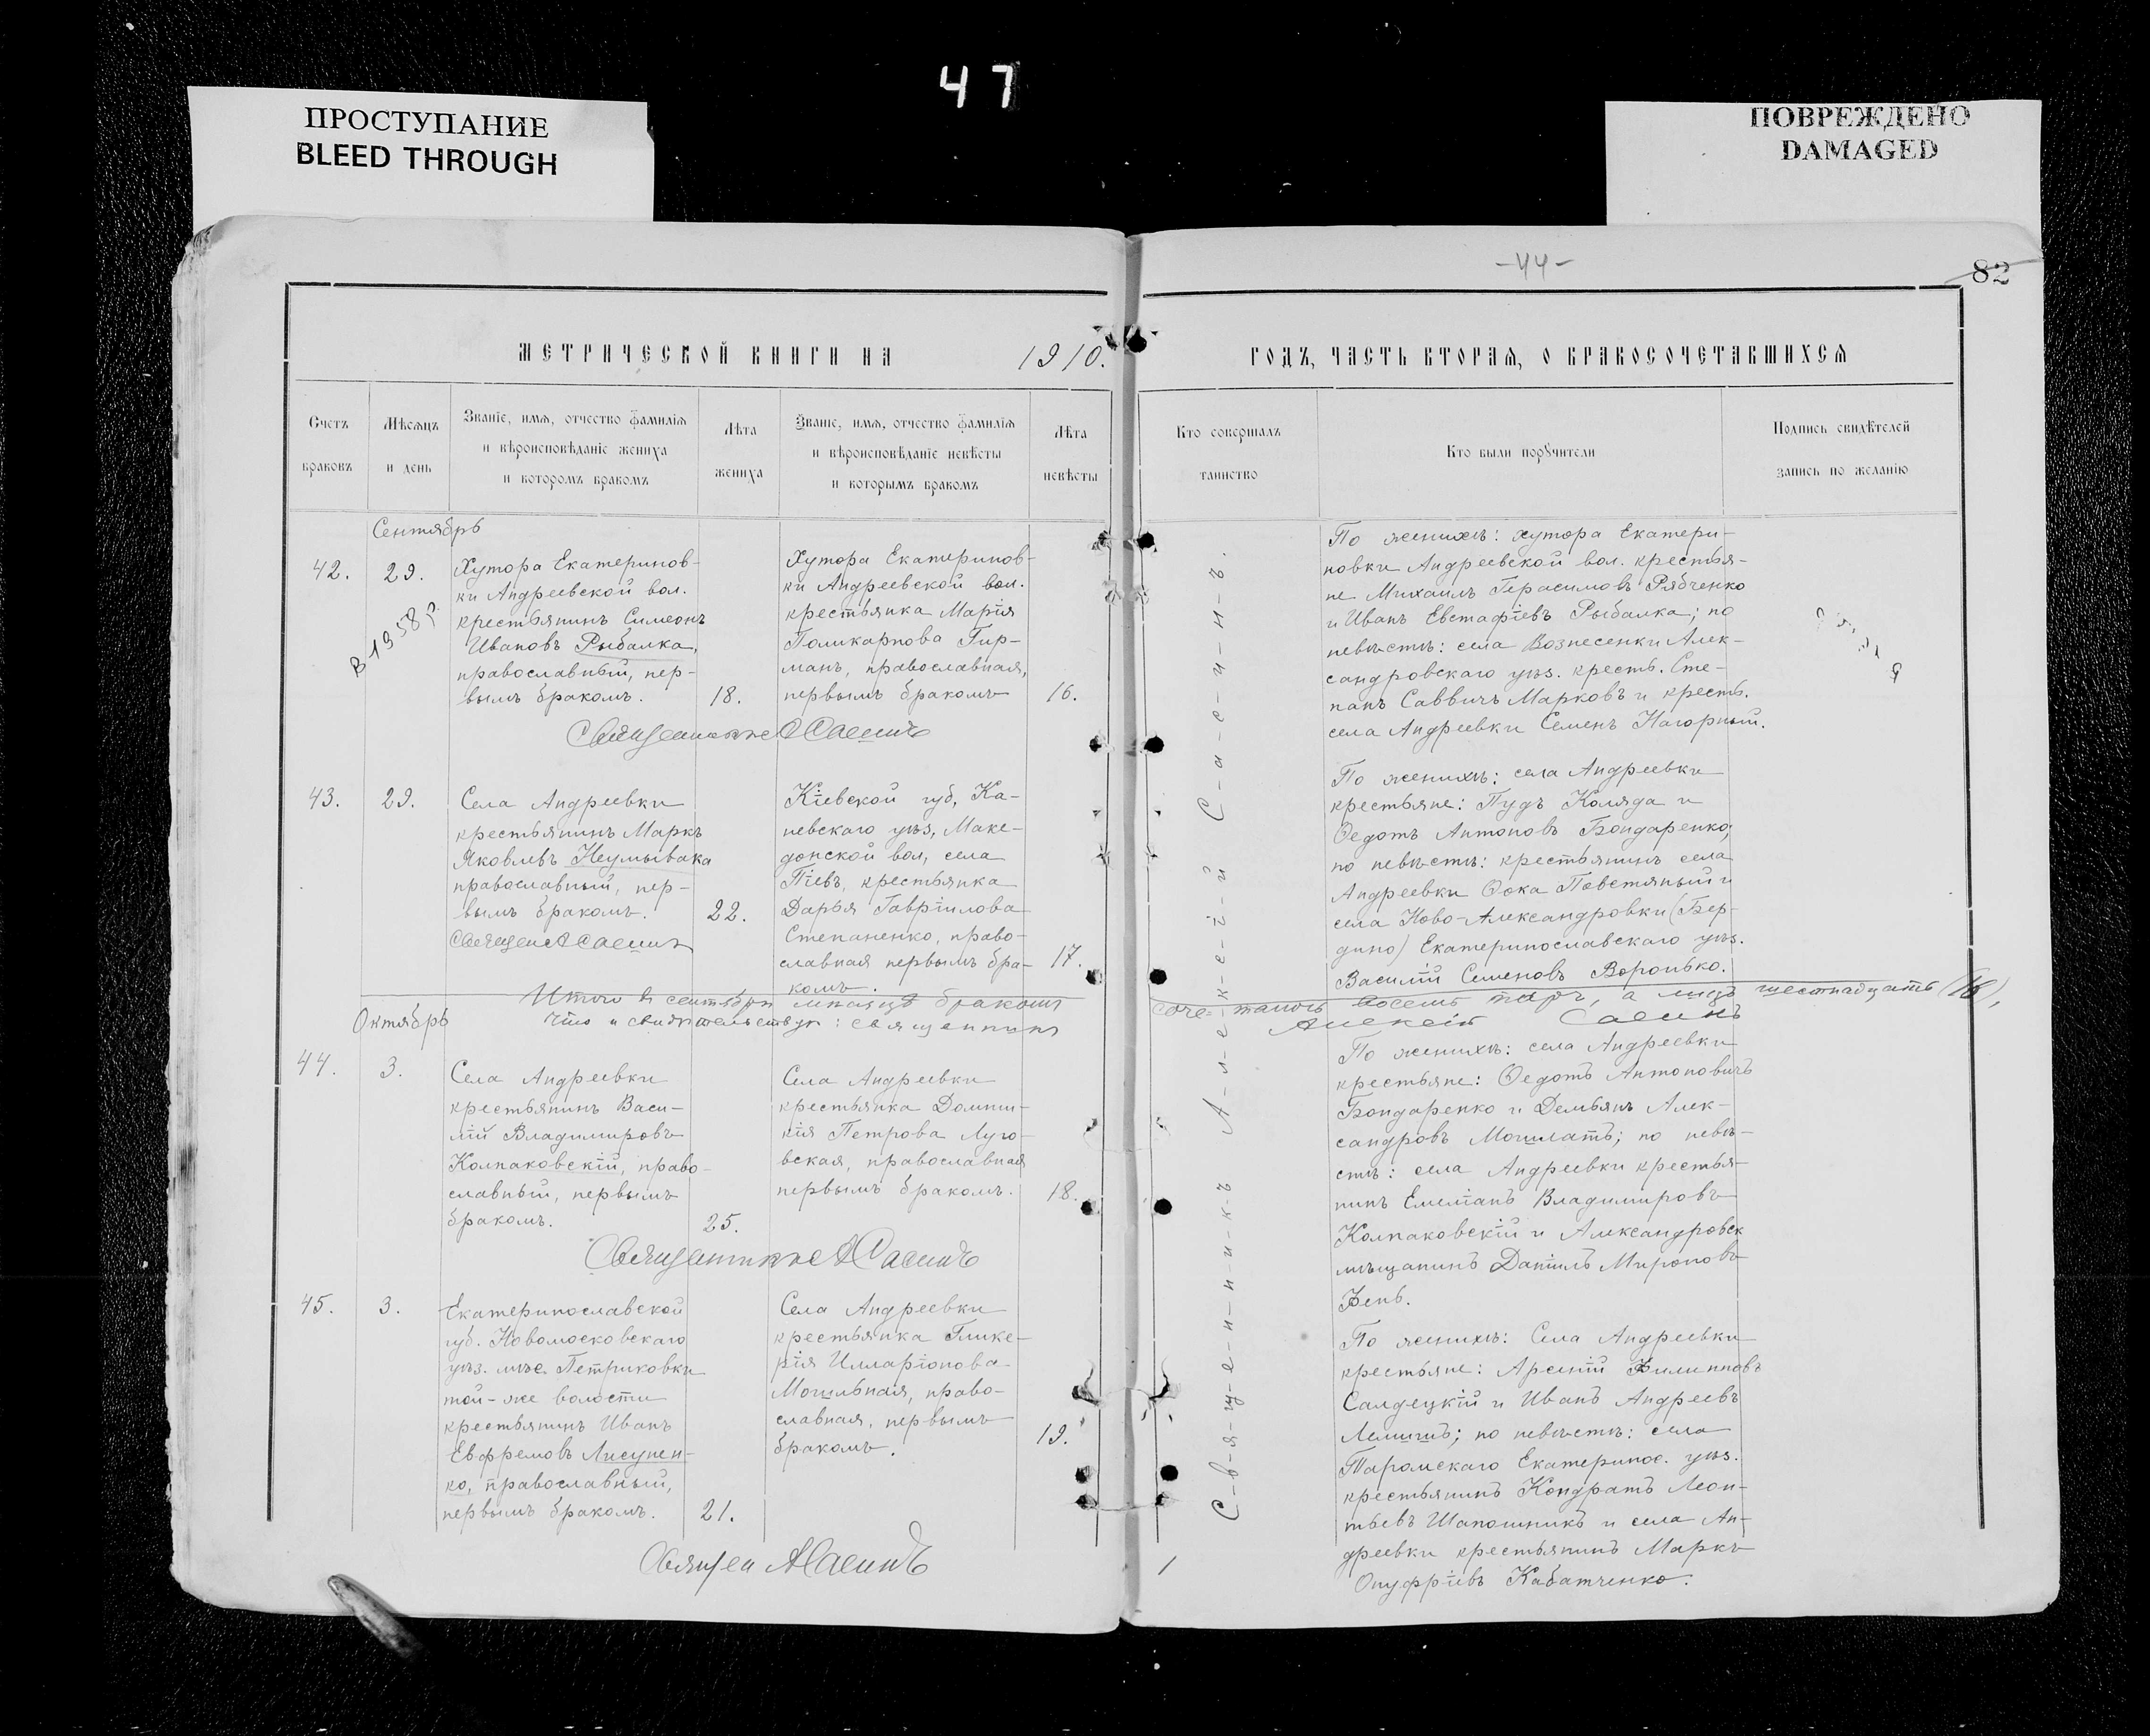 47
ПРОСТУПАНИЕ
BLEED THROUGH
ПОВРЕЖДЕНО
DAMAGED
-44-
82
МЕТРИЧЕСКОЙ КНИГИ НА 1910.
ГОДЪ, ЧАСТЬ ВТОРАЯ, О БРАКОСОЧЕТАВШИХСЯ
Счетъ
браковъ
Мѣсяцъ
и день
Званіе, имя, отчество фамилія
и вѣроисповѣданіе жениха
и которомъ бракомъ
Лѣта
жениха
Званіе, имя, отчество фамилія
и вѣроисповѣданіе невѣсты
и которымъ бракомъ
Лѣта
невѣсты
Кто совершалъ
таинство
Кто были поручители
Подпись свидѣтелей
запись по желанію
Сентябрь
42.
29.
В 1958 р.
Хутора Екатеринов-
ки Андреевской вол.
крестьянинъ Симеонъ
Ивановъ Рыбалка,
православный, пер-
вымъ бракомъ.
18.
Хутора Екатеринов-
ки Андреевской вол.
крестьянка Марія
Поликарпова Гир-
манъ, православная,
первымъ бракомъ
16.
По женихѣ: хутора Екатери-
новки Андреевской вол. крестья-
не Михаилъ Герасимовъ Рябченко
и Иванъ Евстафіевъ Рыбалка; по
невѣстѣ: села Вознесенки Алек-
сандровскаго уѣз. кресть. Сте-
панъ Саввичъ Марковъ и кресть.
села Андреевки Семенъ Нагорный.
Священникъ А Саенинъ
43.
29.
Села Андреевки
крестьянинъ Маркъ
Яковлевъ Неумывака
православный, пер-
вымъ бракомъ.
22.
Кіевской губ, Ка-
невскаго уѣз, Маке-
донской вол, села
Піевъ, крестьянка
Дарья Гавріилова
Степаненко, право-
славная первымъ бра-
комъ.
17.
По женихѣ: села Андреевки
крестьяне: Пудъ Коляда и
Ѳедотъ Антоновъ Бондаренко;
по невѣстѣ: крестьянинъ села
Андреевки Ѳока Повстяный и
села Ново-Александровки (Бер-
дино) Екатеринославскаго уѣз.
Василій Семеновъ Воронько.
Итого въ сентябрѣ мѣсяцѣ бракомъ
соче- талось восемь паръ, а лицъ шестнадцать (16),
что и свидѣтельствую: священникъ
Алексій Саенинъ
Октябрь
44.
3.
Села Андреевки
крестьянинъ Васи-
лій Владимировъ
Колпаковскій, право-
славный, первымъ
бракомъ.
25.
Села Андреевки
крестьянка Домни-
кія Петрова Луго-
вская, православная
первымъ бракомъ.
18.
По женихѣ: села Андреевки
крестьяне: Ѳедотъ Антоновичъ
Бондаренко и Демьянъ Алек-
сандровъ Могилатъ; по невѣ-
стѣ: села Андреевки крестья-
нинъ Емеліанъ Владимировъ
Колпаковскій и Александровск
мѣщанинъ Даніилъ Мироновъ
Кень.
Священникъ А Саенинъ
45.
3.
Екатеринославской
губ. Новомосковскаго
уѣз. мѣс. Петриковки
той-же волости
крестьянинъ Иванъ
Евфремовъ Лисунен-
ко, православный,
первымъ бракомъ.
21.
Села Андреевки
крестьянка Глике-
рія Илларіонова
Могильная, право-
славная, первымъ
бракомъ.
19.
По женихѣ: Села Андреевки
крестьяне: Арсеній Филипповъ
Салдецкій и Иванъ Андреевъ
Лемишъ; по невѣстѣ: села
Таромскаго Екатеринос. уѣз.
крестьянинъ Кондратъ Леон-
тьевъ Шапошникъ и села Ан-
дреевки крестьянинъ Маркъ
Онуфріевъ Кабатченко.
С-в-я-щ-е-н-н-и-к-ъ А-л-е-к-с-і-й С-а-е-н-и-н-ъ.